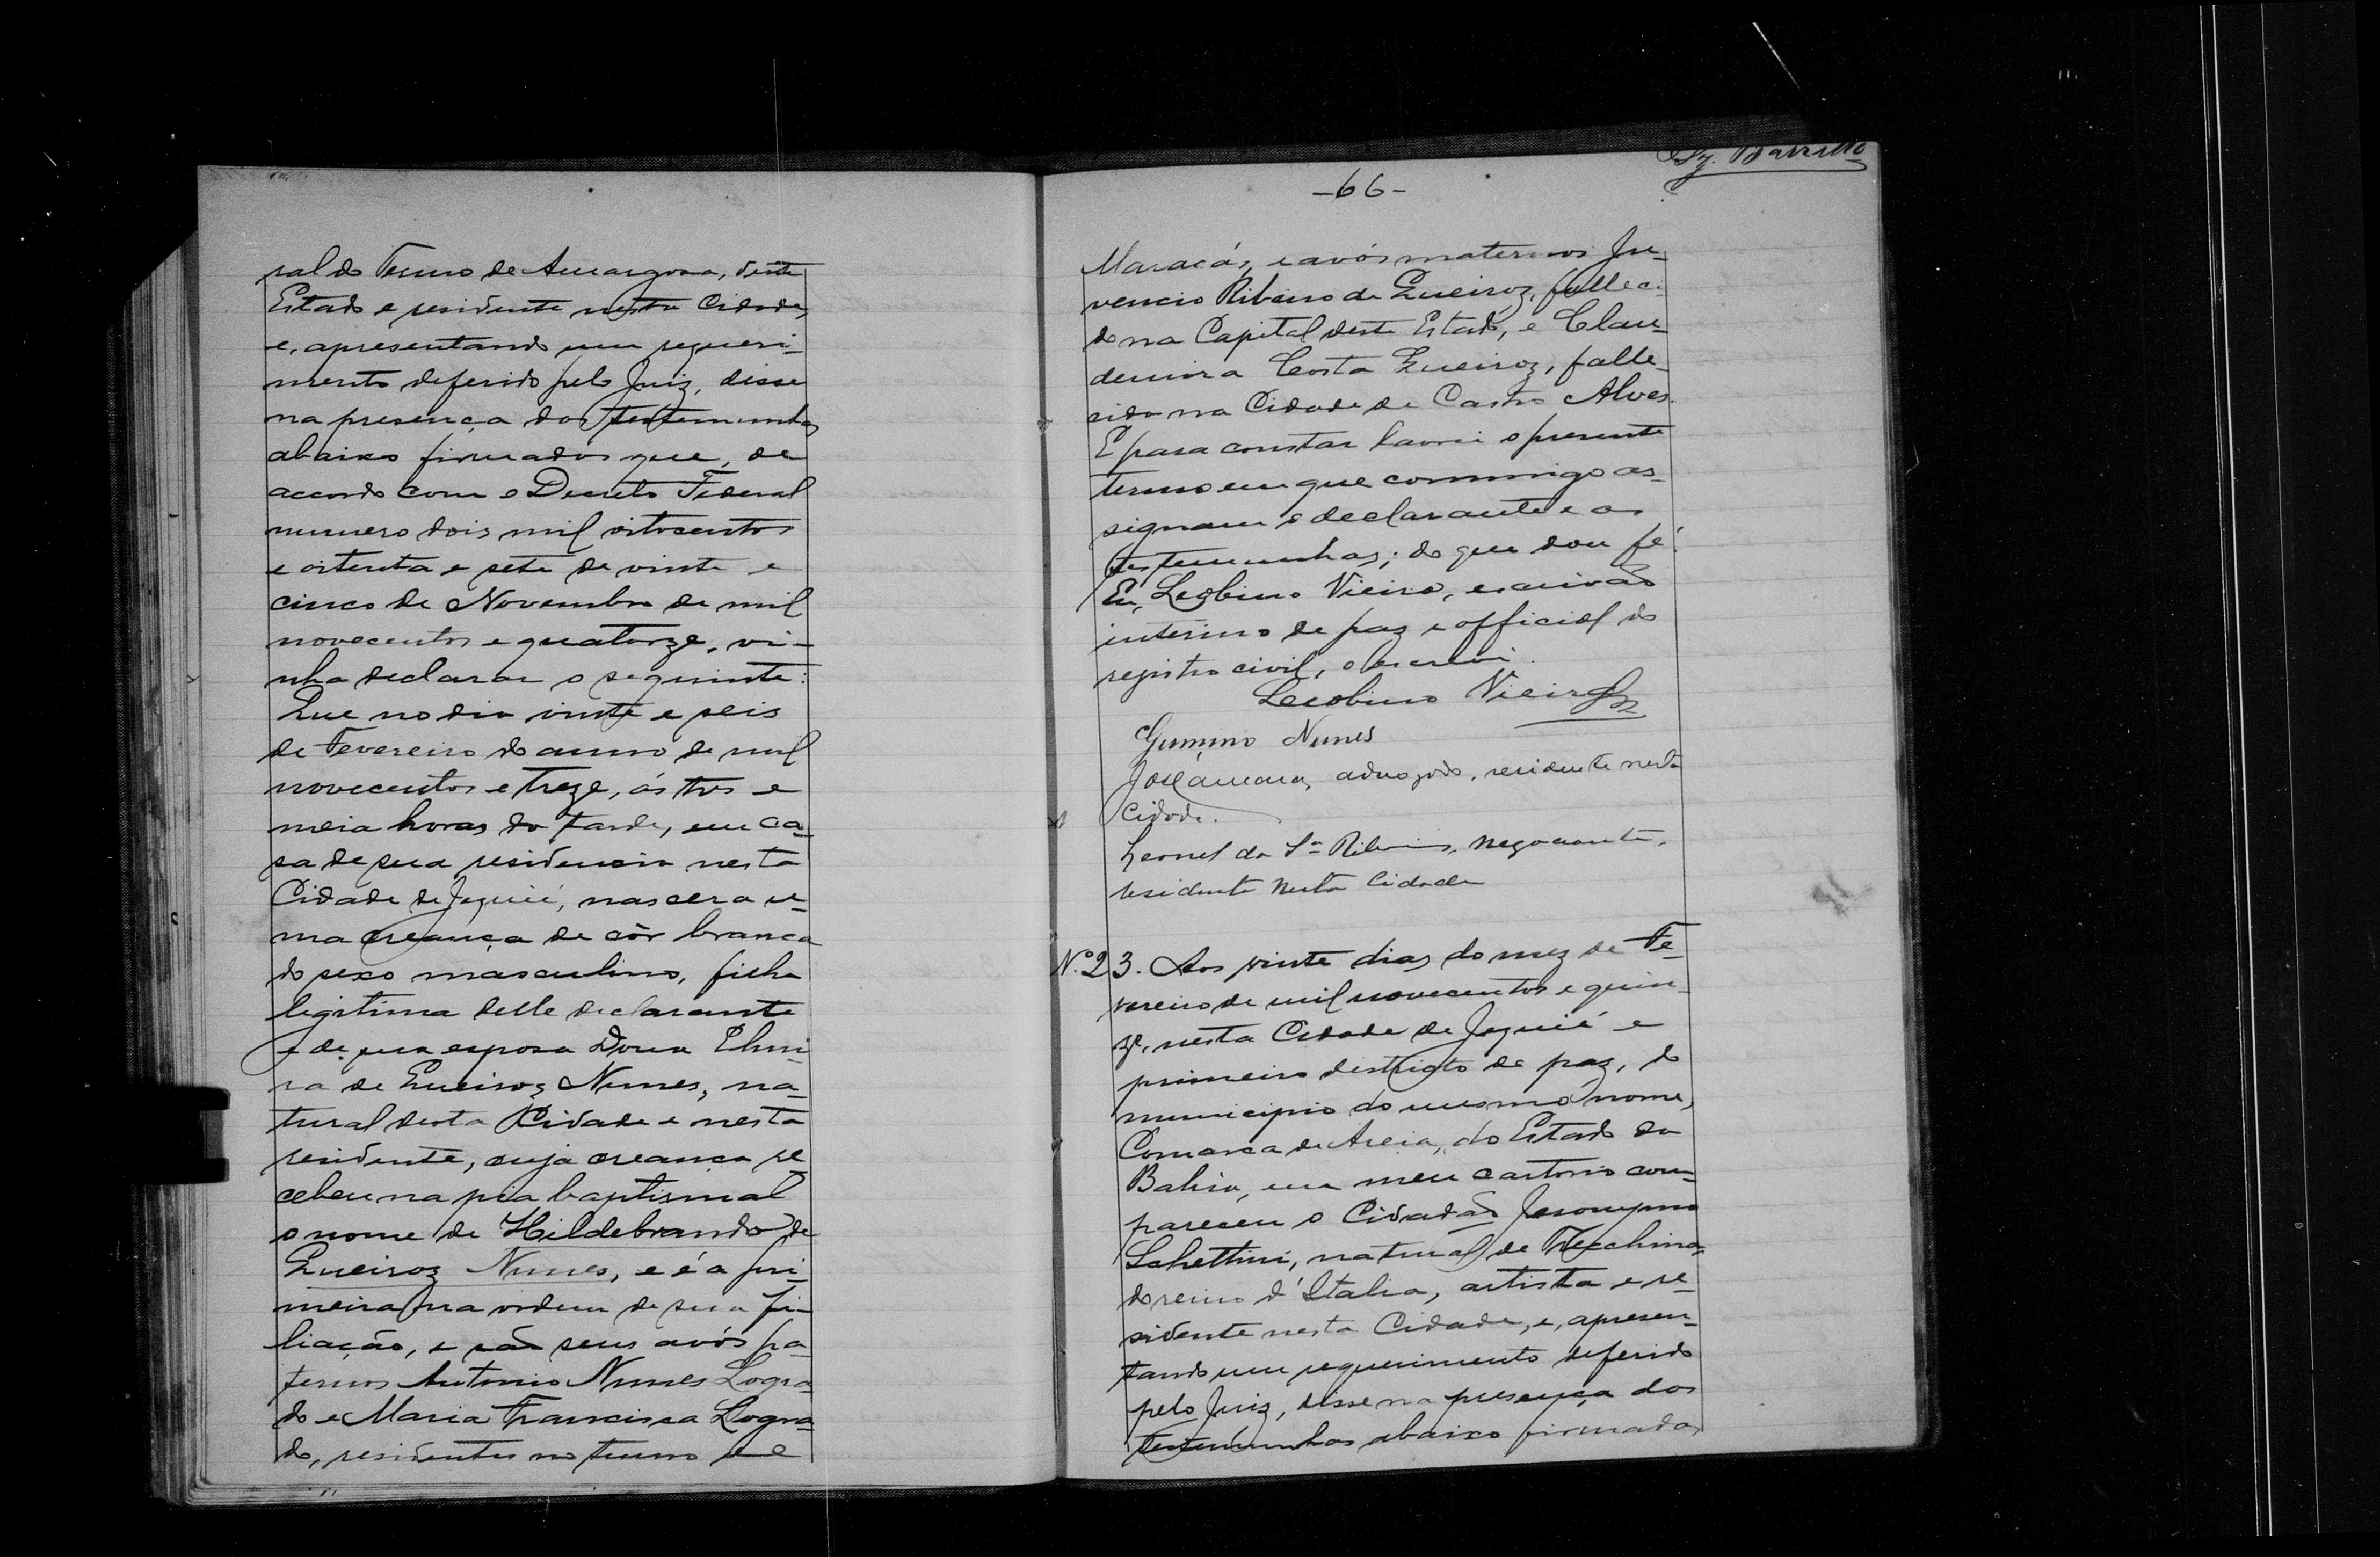 ral do Termo de Amargosa, deste
Estado e residente nesta Cidade,
e, apresentando um requeri-
mento deferido pelo Juiz, disse
na presença das testemunhas
abaixo firmadas que, de
accordo com o Decreto Federal
numero dois mil oitocentos
e oitenta e sete de vinte e
cinco de Novembro de mil
novecentos e quatorze, vi-
nha declarar o seguinte:
Que no dia vinte e seis
de Fevereiro do anno de mil
novecentos e treze, ás tres e
meia horas da tarde, em ca-
sa de sua residencia nesta
Cidade de Jequié, nascera u-
ma creança de côr branca
do sexo masculino, filha
legitima delle declarante
e de sua esposa Dona Elmi-
ra de Queiroz Nunes, na-
tural desta Cidade e nesta
residente, cuja creança re
cebeu na pia baptismal
o nome de Hildebrando de
Queiroz Nunes, e é a pri-
meira na ordem de sua fi-
liação, e são seus avós pa-
ternos Antonio Nunes Logra-
do e Maria Francisca Logra-
do, residentes no termo de
Barretto
-66-
Maracás, e avós maternos Ju-
vencio Ribeiro de Queiroz, falleci-
do na Capital deste Estado, e Clau-
demira Costa Queiroz, falle-
cida na Cidade de Castro Alves.
E para constar lavrei o presente
termo em que commigo as-
signam o declarante e as
testemunhas; do que dou fé.
Eu, Leobino Vieira, escrivão
interino de paz e official do
registro civil, o escrevi.
Leobino Vieira
Nunes
José advogado, residente nesta
Cidade.
Leonel da Sa Ribeiro, negociante,
residente nesta Cidade
No. 23. Aos vinte dias do mez de Fe-
vereiro de mil novecentos e quin-
ze, nesta Cidade de Jequié e
primeiro districto de paz, do
municipio do mesmo nome,
Comarca de Areia, do Estado da
Bahia, em meu cartorio com-
pareceu o Cidadão Jeronymo
Schettini, natural de Trecchina,
do reino d'Italia, artista e re-
sidente nesta Cidade, e, apresen-
tando um requerimento deferido
pelo Juiz, disse na presença das
testemunhas abaixo firmadas